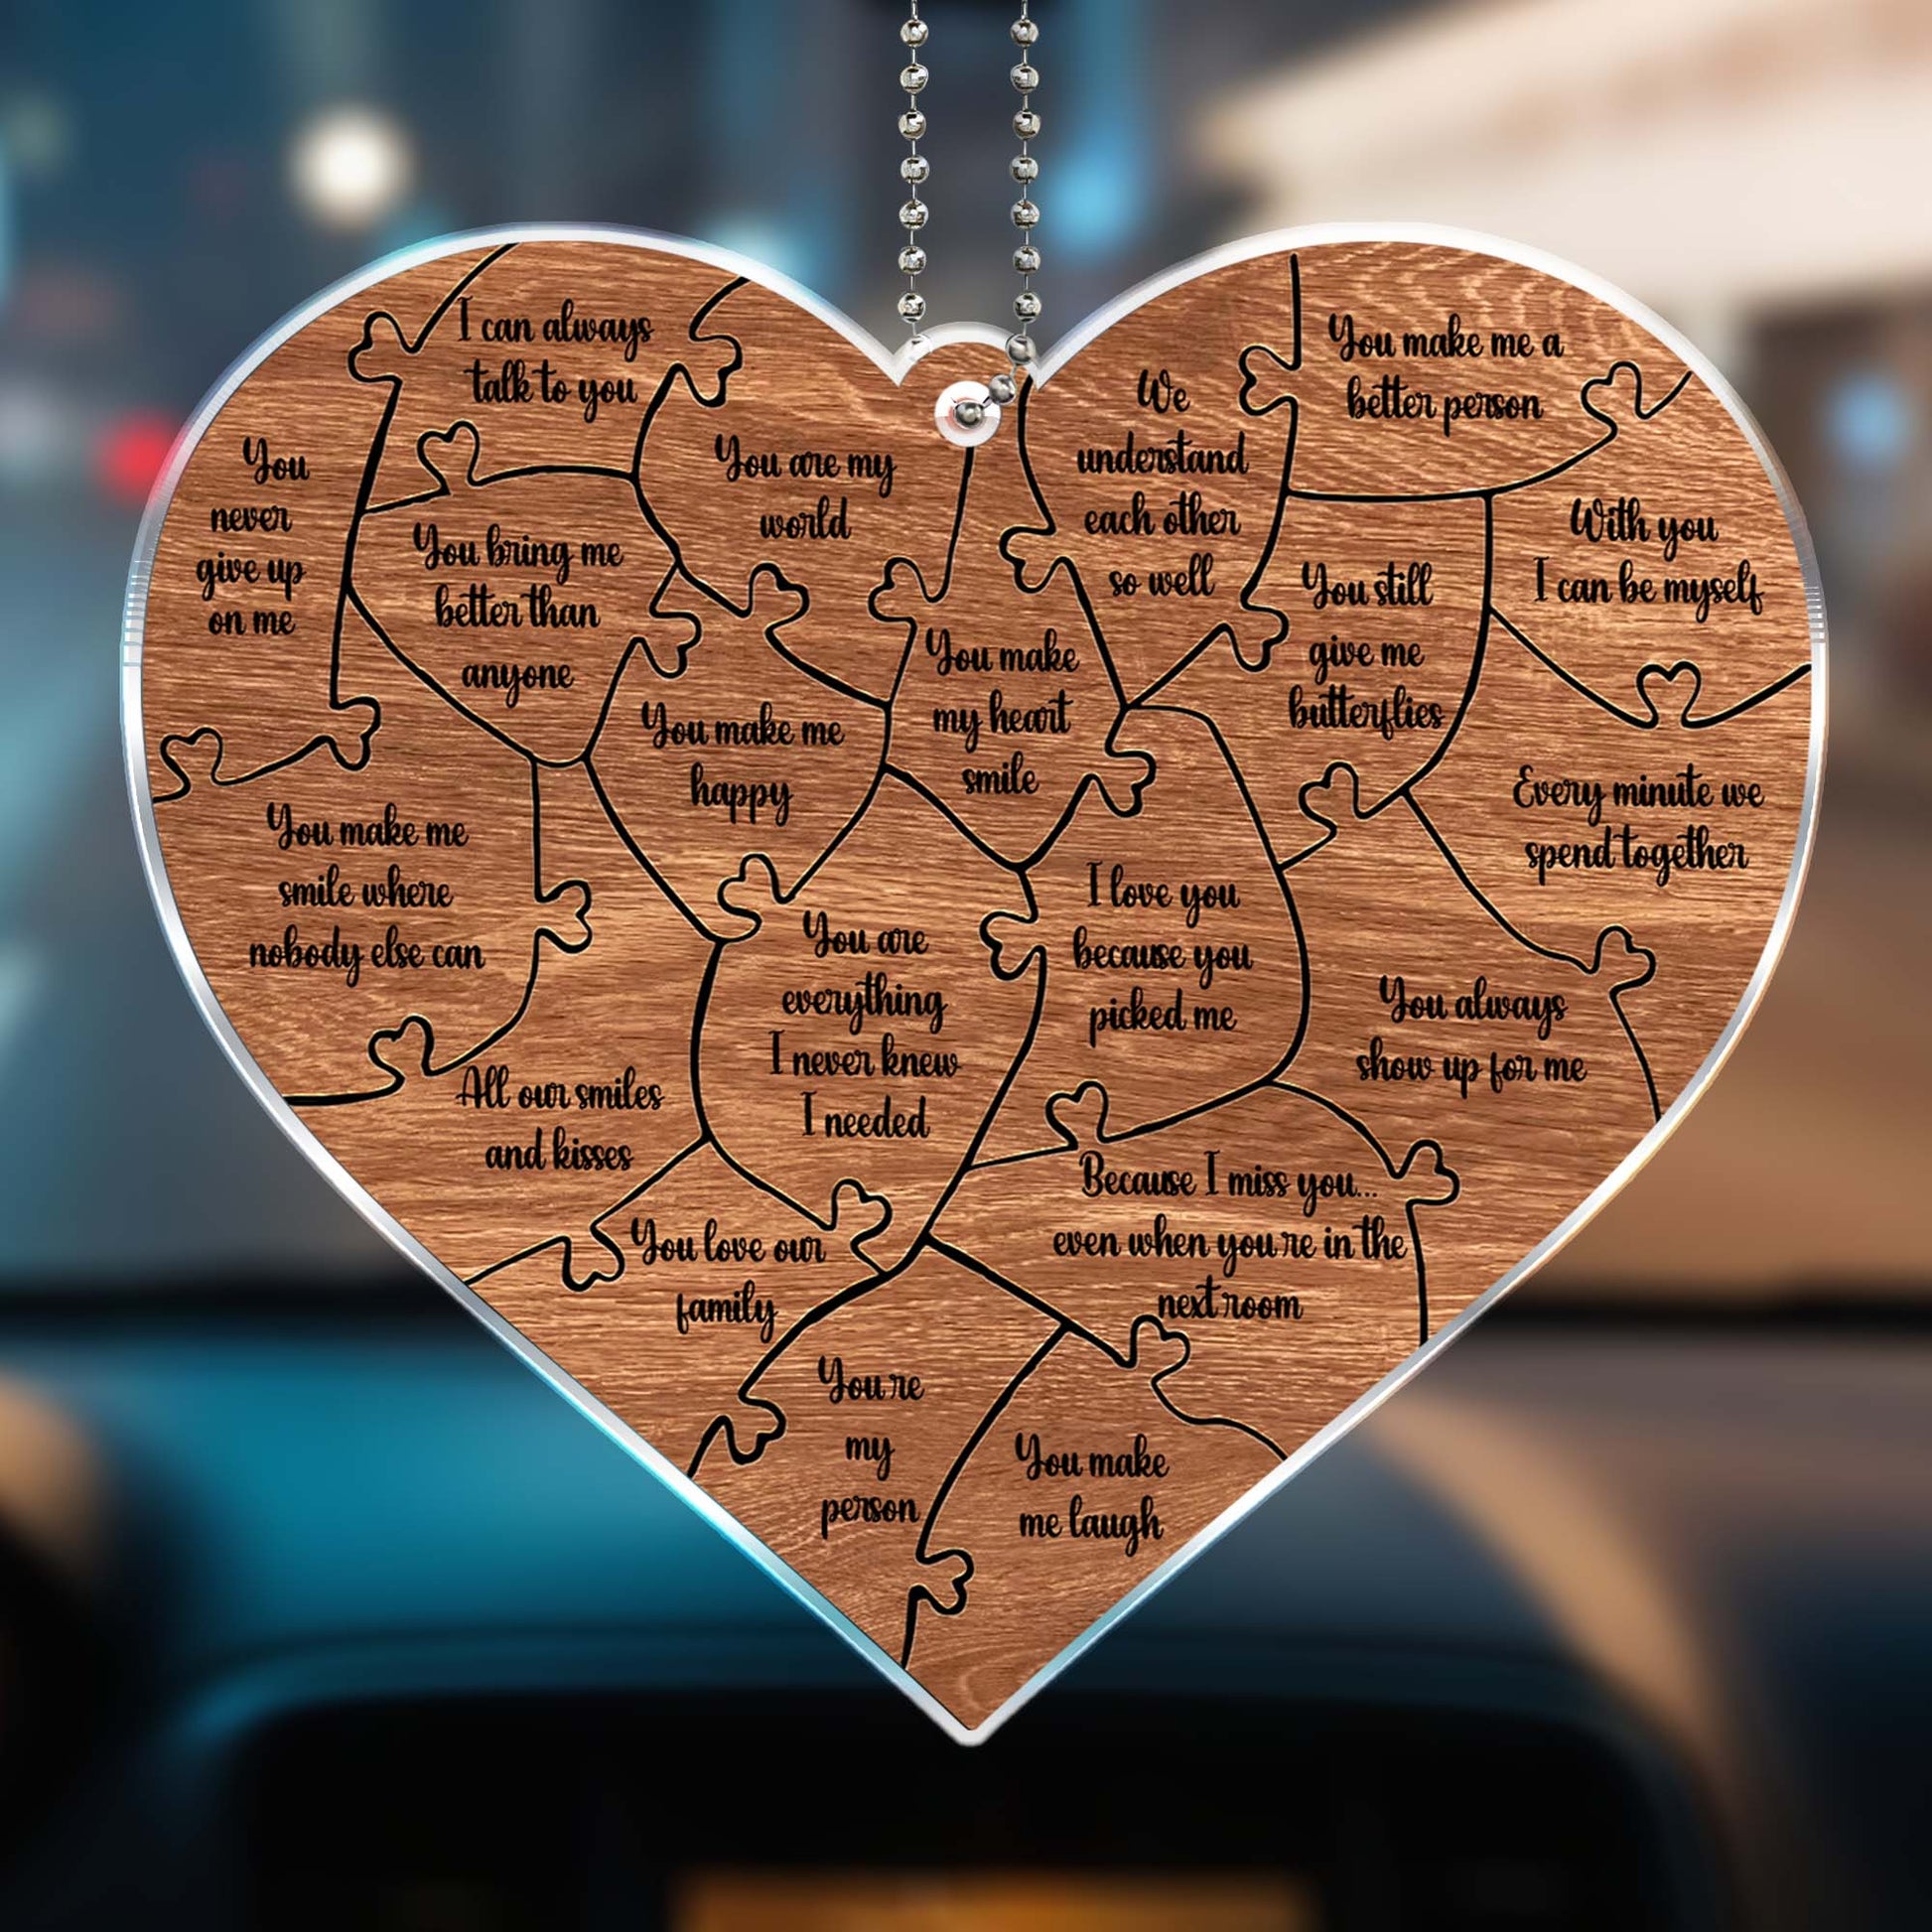 I can always
talk to you
You make me a
better person
You
never
give up
on me
You are my
world
We
understand
each other
so well
With you
I can be myself
You bring me
better than
anyone
You still
give me
butterflies
You make me
happy
You make
my heart
smile
Every minute we
spend together
You make me
smile where
nobody else can
You are
everything
I never knew
I needed
I love you
because you
picked me
You always
show up for me
All our smiles
and kisses
Because I miss you...
even when you're in the
next room
You love our
family
You're
my
person
You make
me laugh